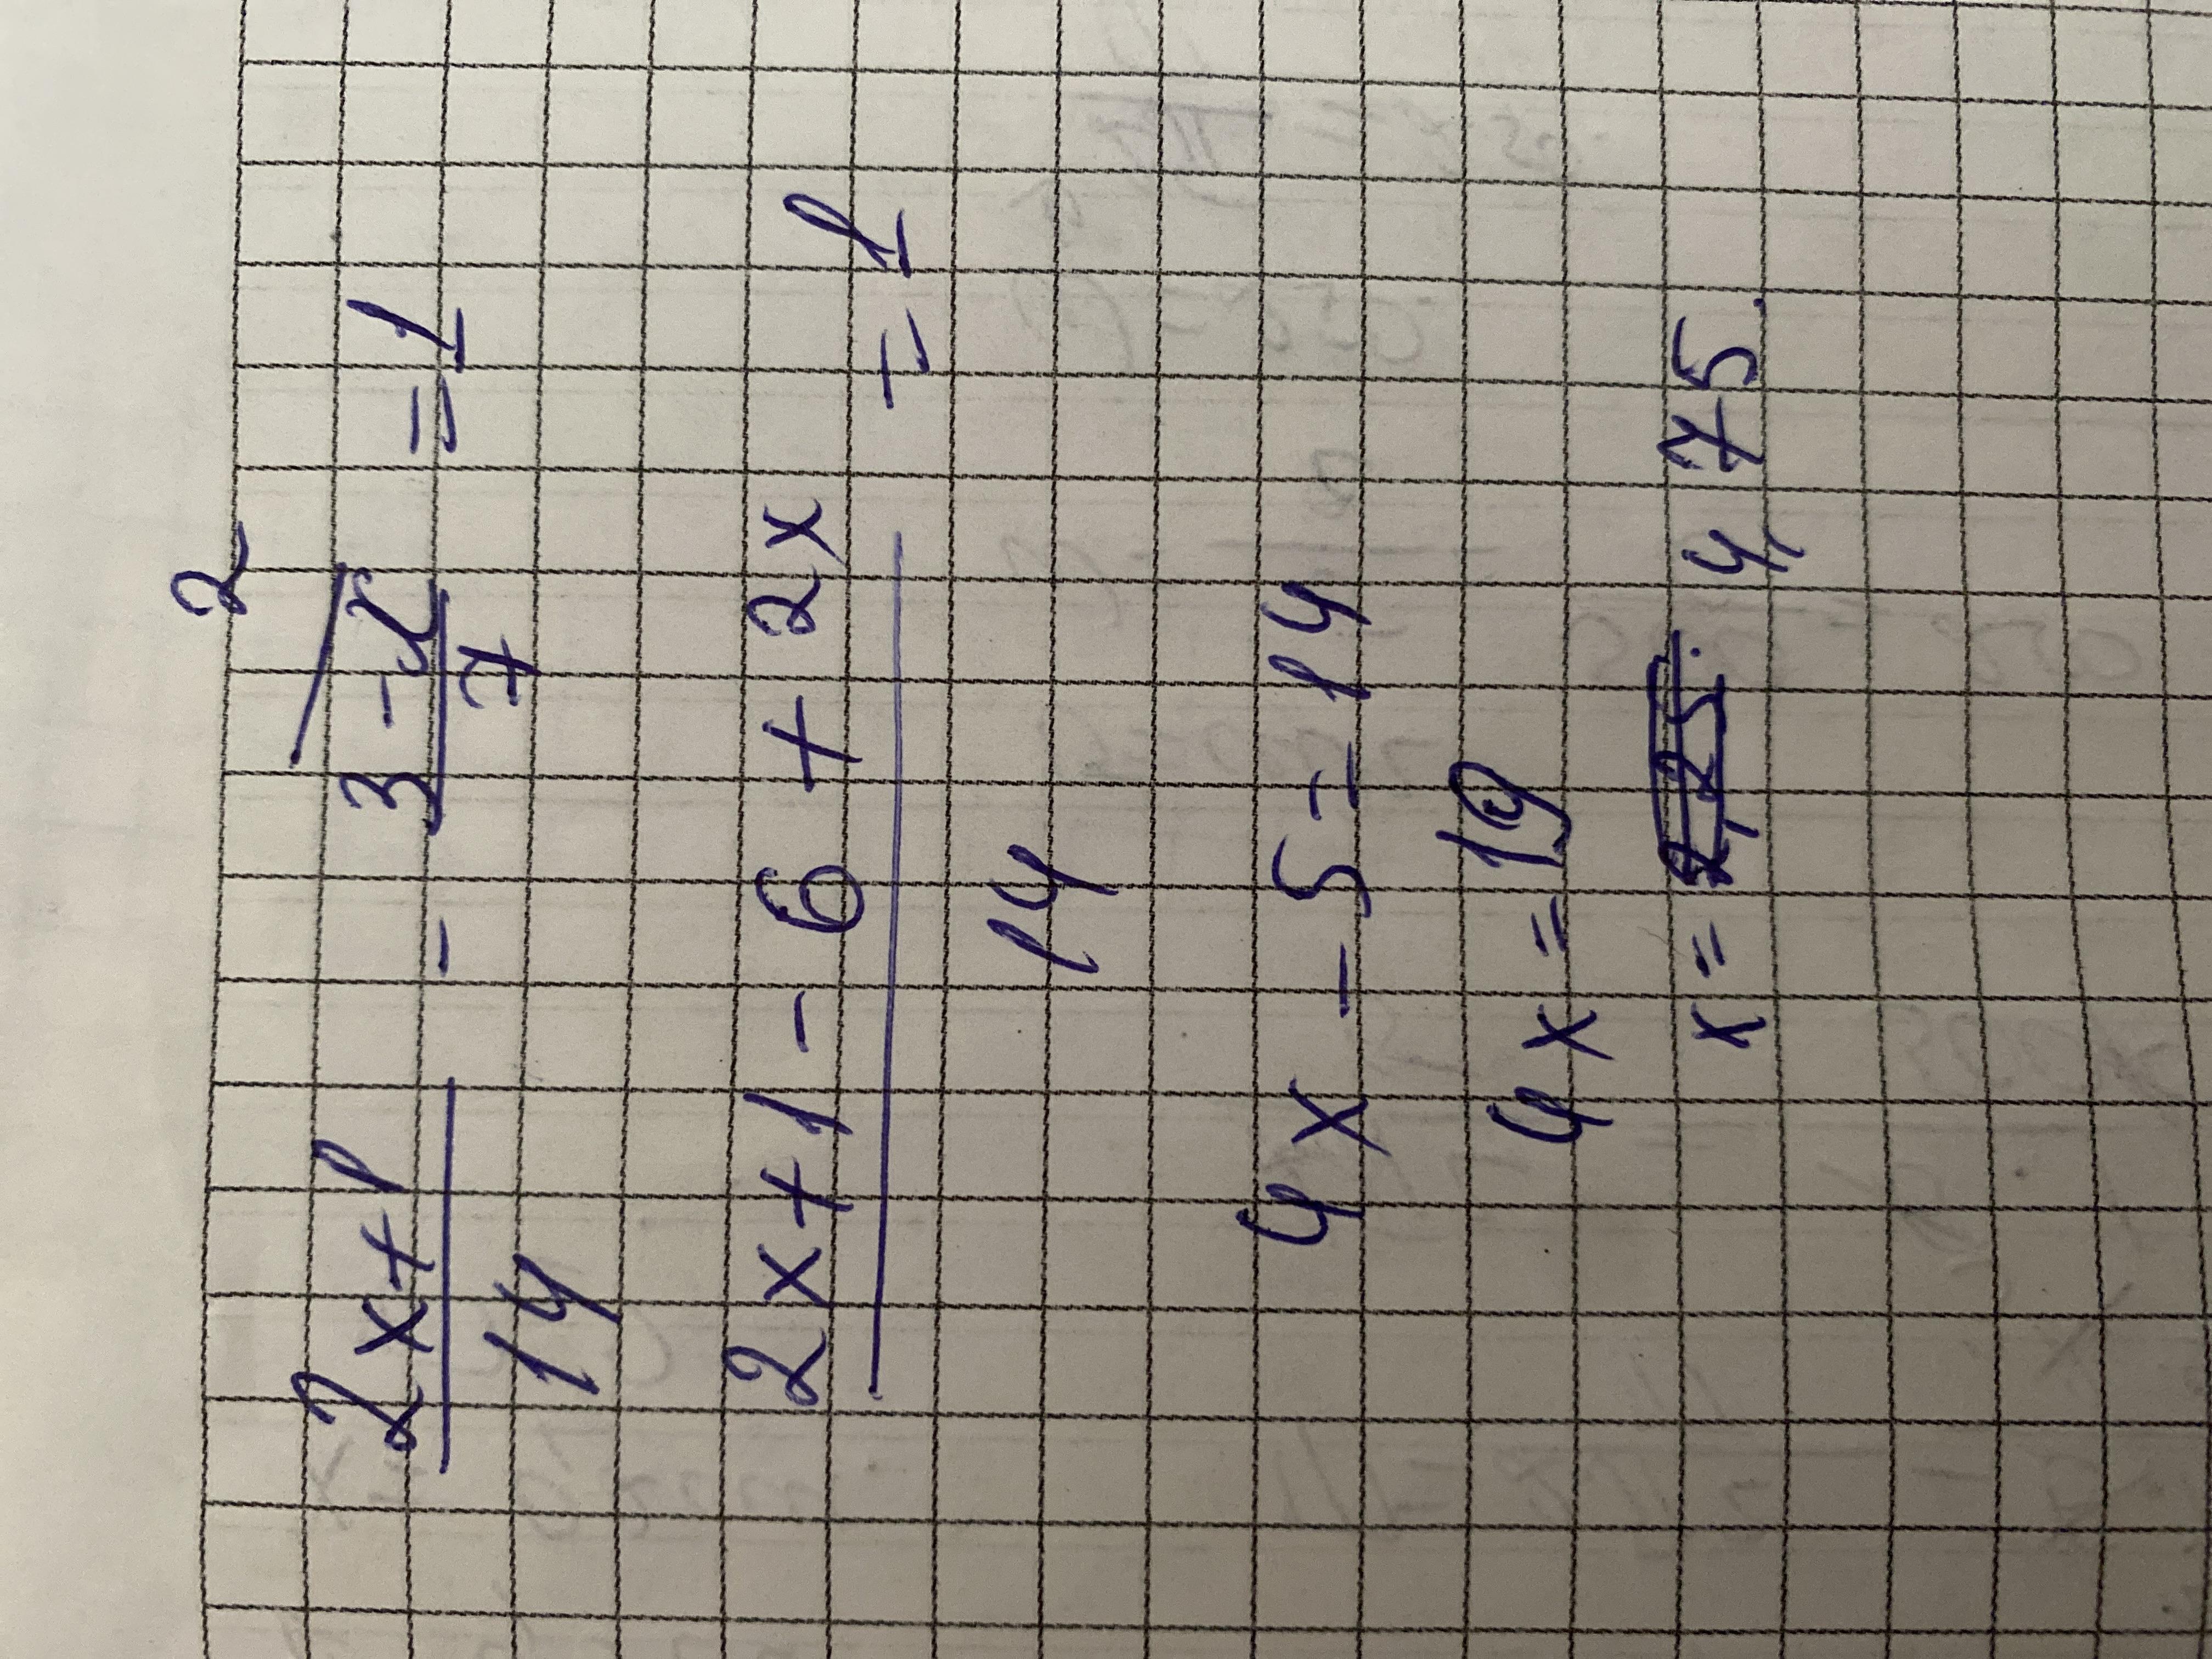 2x+1/14 - 3-x/7 ^2 = 1
2x+1-6+2x/14 = 1
4x-5=14
4x=19
x= 4,75.